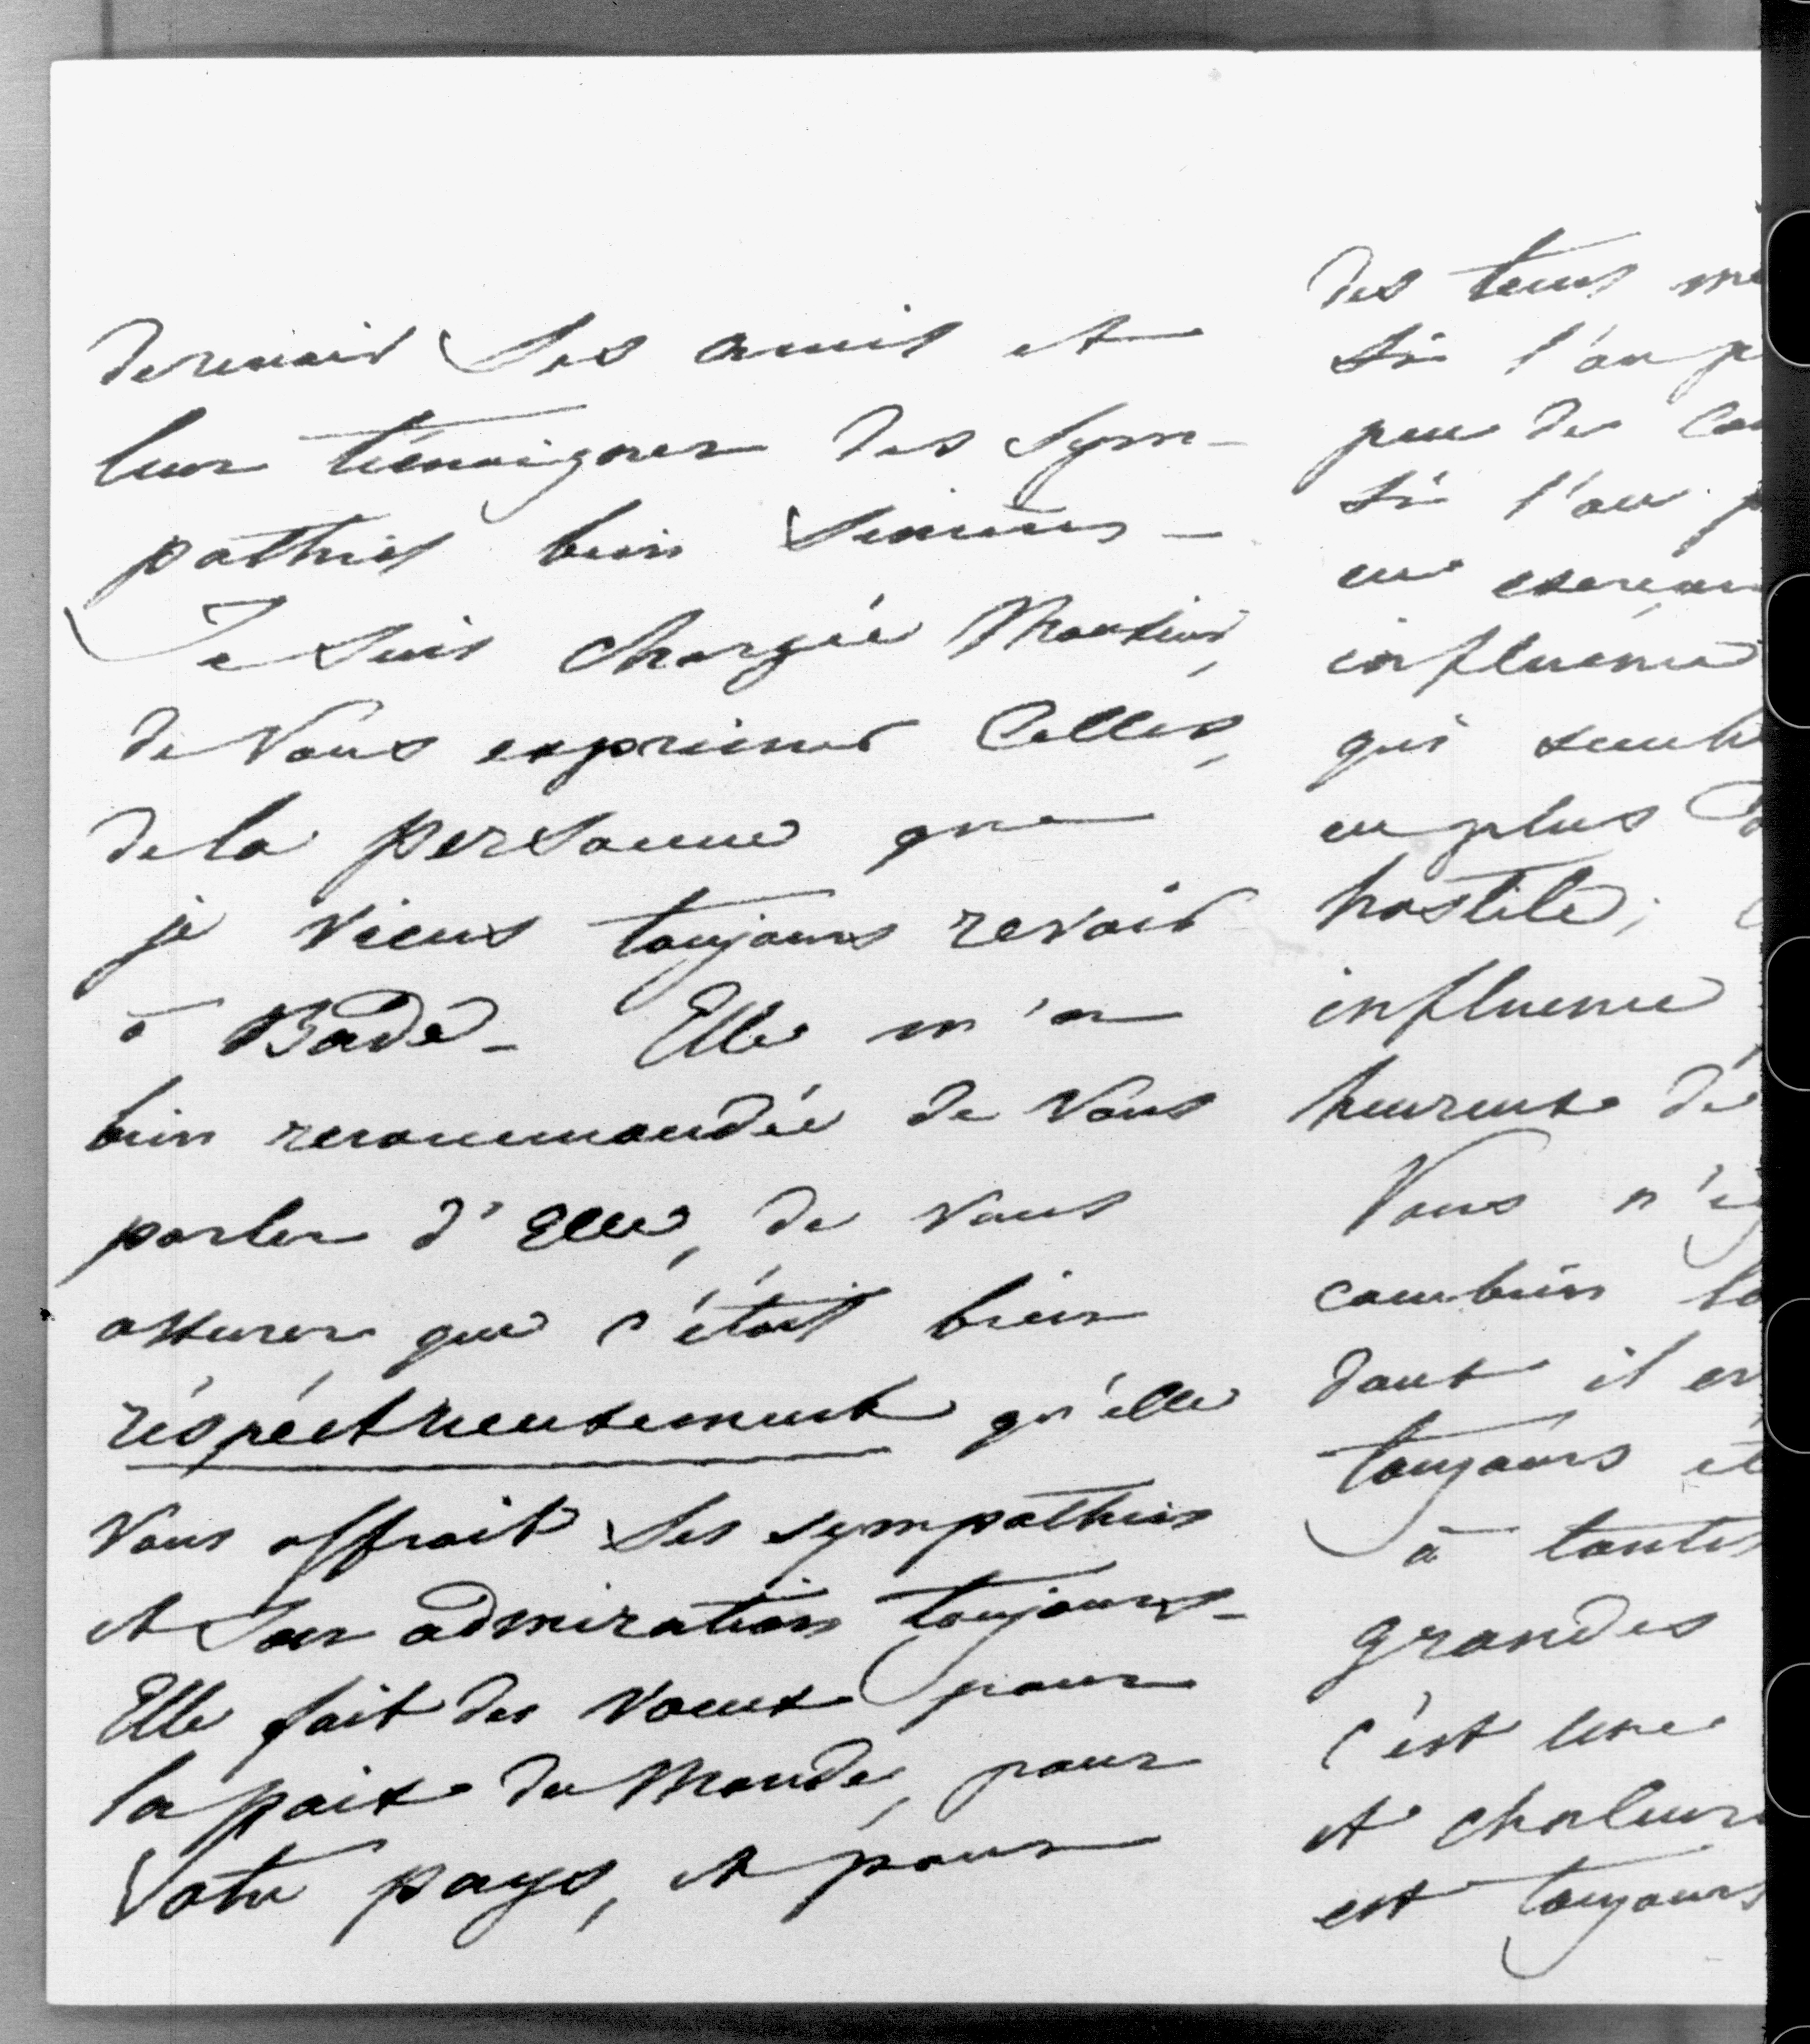 de revoir Ses amis et
leur témoigner des sym-
pathies bien Sincères -
Je Suis chargée Monsieur,
de Vous exprimer Celles,
de la personne que
je viens toujours revoir
à Bade - Elle m'a
bien recommandée de Vous
parler d'Elle, de vous
assurer que c'était bien
réspéctueusement qu'elle
Vous offrait Ses sympathies
et Son admiration toujours -
Elle fait des vœux pour
la paix du Monde, pour
Votre pays, et pour
des tems
Si l'on p
peu de
Si l'on p
en
influence
qui
en plus
hostile;
influence
heureuse de
Vous n'
combien
dont il
toujours
à toutes
grandes
c'est une
et chaleur
est toujours